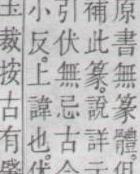 原書無篆體但
補此篆說詳元
引伏無忌古今
小反上諱也伏
玉裁按古有肇